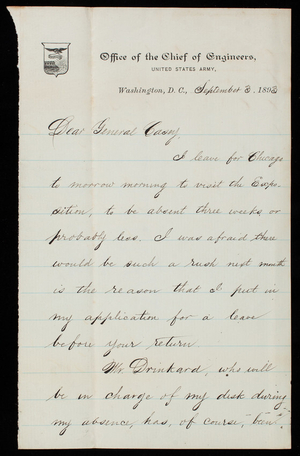 Office of the Chief of Engineers,
UNITED STATES ARMY,
Washington, D.C., September 3, 1893
Dear General Casey,
I leave for Chicago
to morrow morning to visit the Expo-
sition, to be absent three weeks or
probably less. I was afraid there
would be such a rush next month
is the reason that I put in
my application for a leave
before your return.
Mr. Drinkard, who will
be in charge of my desk during
my absence, has, of course, "been"